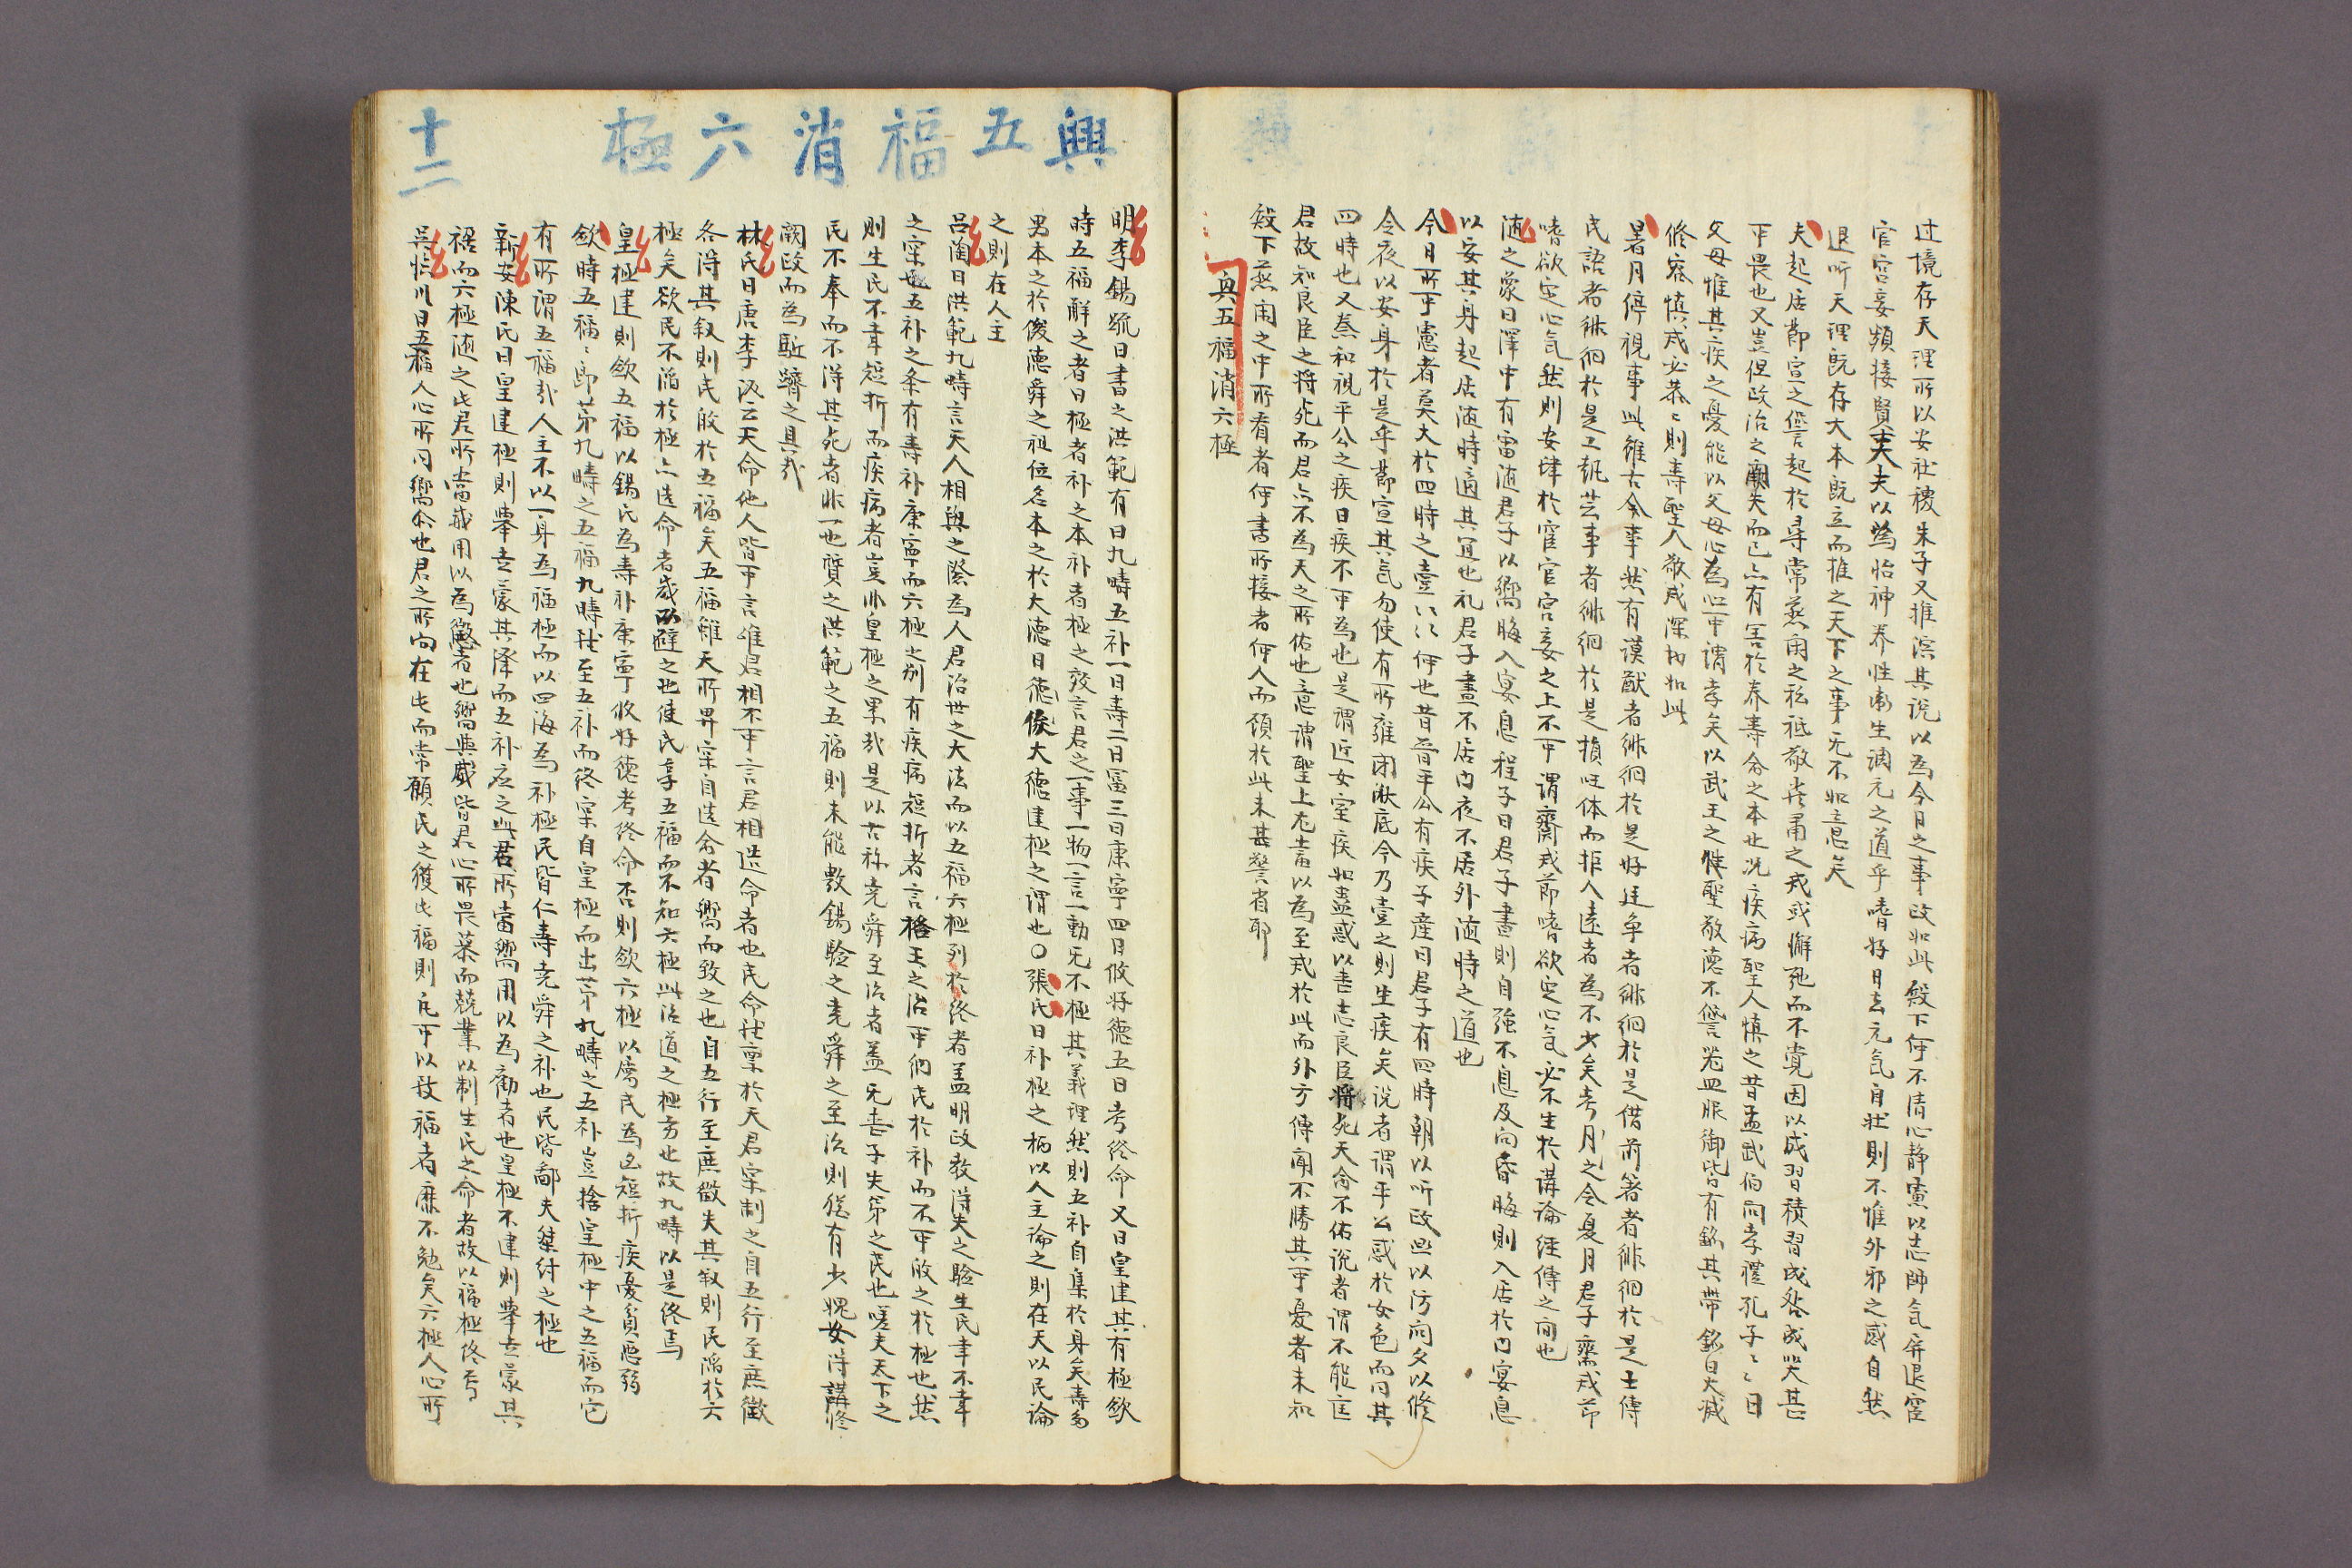 过境存天理所以安社稷朱子又推演其说以為今日之事政如此殿下何不清心静慮以志帥氣屏退宦
官宮妾頻接賢夫夫以為怡神养性衛生調元之道乎嗜好日去元気自壮則不惟外邪之感自然
退听天理既存大本既立而推之天下之事旡不如意矣
夫起居莭宣之愆言起於尋常燕闲之私祗敬失甫之戒或懈弛而不覚因以成習積習成咎成哭甚
可畏也又豈但政治之闕失而已亦有害於养寿命之本也况疾病聖人慎之昔孟武伯问孝礼孔子〻曰
父母惟其疾之憂能以父母心為心可謂孝矣以武王之惟聖敬德不愆器皿服御皆有銘其帶銘曰火滅
修容慎戒必恭〻則寿聖人敬戒深切如此
暑月停視事此雖古今事然有謨猷者徘徊於是好廷争者徘徊於是借前箸者徘徊於是士傳
民語者徘徊於是工執芸事者徘徊於是損旺体而拒人遠者為不少矣考月之令夏月君子齋戒莭
嗜欲定心気然則安肆於宦官宮妾之上不可謂齋戒莭嗜欲定心気必不生於講論経傳之间也
随之象曰澤中有雷随君子以嚮晦入宴息程子曰君子晝則自強不息及向昏晦則入居於内宴息
以安其身起居随時適其宜也礼君子晝不居内夜不居外随時之道也
今月所可慮者莫大於四時之壹〻〻何也昔晉平公有疾子産曰君子有四時朝以听政晝以访问夕以修
令夜以安身於是乎莭宣其気勿使有所雍闭湫底今乃壹之則生疾矣说者謂平公惑於女色而同其
四時也又秦和視平公之疾曰疾不可為也是謂近女室疾如蠱惑以丧志良臣將死天命不佑说者謂不能匡
君故知良臣之将死而君亦不為天之所佑也意謂聖上尤當以為至戒於此而外方傳闻不勝其可憂者未知
殿下燕闲之中所看者何書所接者何人而顧於此未甚警省耶
興五福消六極
興五福消六極
十二
明李錫疏曰書之洪範有曰九疇五补一曰寿二曰富三曰康寧四曰攸好德五曰考终命又曰皇建其有極欽
時五福解之者曰極者补之本补者極之效言君之一事一物一言一動旡不極其義理然則五补自集於身矣寿多
男本之於俊德舜之祖位名本之於大德曰德俊大德建極之謂也○張氏曰补極之柄以人主論之則在天以民論
之則在人主
吕陶曰洪範九疇言天人相與之際為人君治世之大法而以五福六極列於终者盖明政教得失之驗生民幸不幸
之宲也五补之条有寿补康寧而六極之别有疾病短折者言格王之治可納民於补而不可敀之於極也然
則生民不幸短折而疾病者豈非皇極之果哉是以古称尭舜至治者盖旡丧子失弟之民也嗟夫天下之
民不奉而不得其死者非一也質之洪範之五福則未能敷錫驗之尭舜之至治則慇有少媿安得講修
闕政而為駈躋之具哉
林氏曰唐李泌云天命他人皆可言惟君相不可言君相造命者也民命壮禀於天君宲制之自五行至庶徵
各得其叙則民敀於五福矣五福雖天所畀宲自造命者嚮而致之也自五行至庶徵失其叙則民陥於六
極矣欲民不陥於極亦造命者威而壁之也使民享五福而不知六極此治道之極方也故九疇以是终焉
皇極建則欽五福以錫民為寿补康寧攸好德考终命否則欽六極以属民為凶短折疾憂貧悪弱
欽時五福〻即苐九疇之五福九疇壮至五补而终宲自皇極而出苐九疇之五补豈捨皇極中之五福而它
有所謂五福哉人主不以一身為福極而以四海為补極民皆仁寿尭舜之补也民皆鄙夫桀紂之極也
新安陳氏曰皇建極則舉世蒙其泽而五补应之此君所當嚮用以為勸者也皇極不建則舉世蒙其
禍而六極随之此君所當威用以為懲者也嚮與威皆君心所畏慕而兢業以制生民之命者故以福極终焉
呉临川曰五福人心所同嚮命也君之所向在此而常願民之獲此福則凢可以致福者靡不勉矣六極人心所